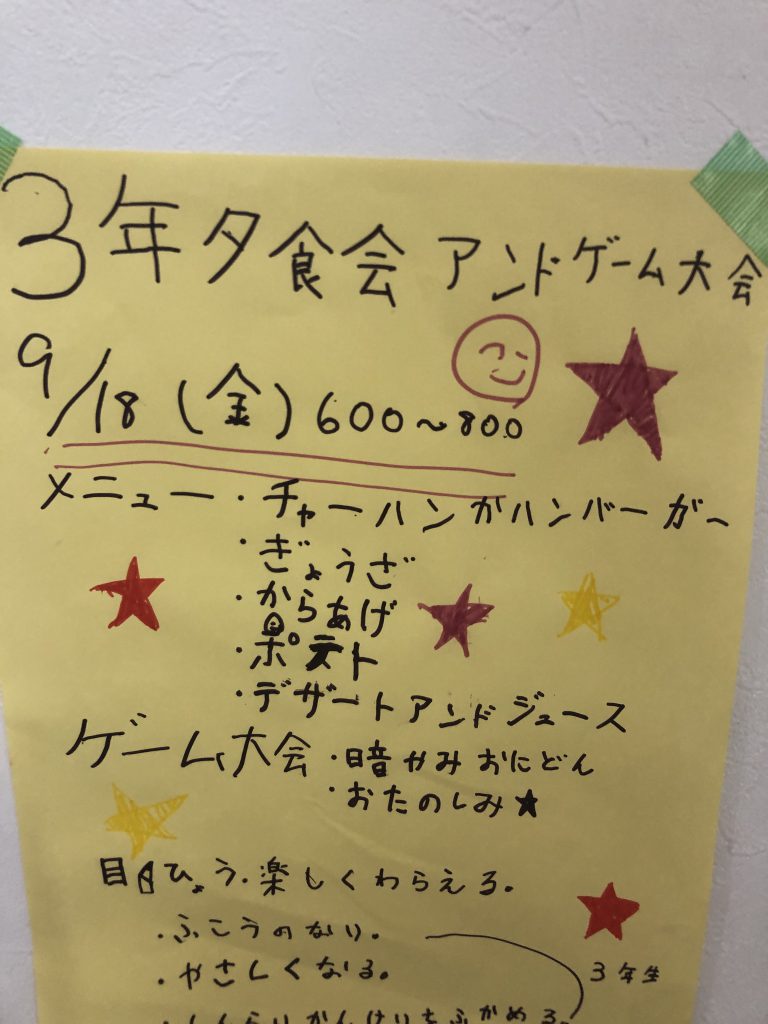 3年夕食会 アンドゲーム大会
9/18 (金) 600～800
メニュー・チャーハンかハンバーガー
・ぎょうざ
・からあげ
・ポテト
・デザートアンドジュース
ゲーム大会 ・暗やみおにどん
・おたのしみ★
目ひょう・楽しくわらえる。
・ふこうのない。
・やさしくなる。
3年生
・しんらいかんけいをふかめる。